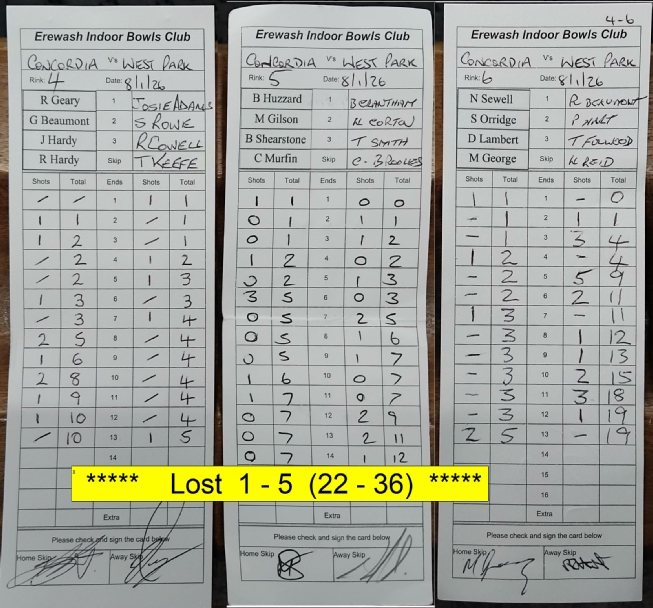 Erewash Indoor Bowls Club
CONCORDIA Vs WEST PARK
Rink: 4 Date: 8/1/26
R Geary 1 JOSIE ADAMS
G Beaumont 2 S ROWE
J Hardy 3 R COWELL
R Hardy Skip T KEEFE
Shots Total Ends Shots Total
/ / 1 1 1
1 1 2 / 1
1 2 3 / 1
/ 2 4 1 2
/ 2 5 1 3
1 3 6 / 3
/ 3 7 1 4
2 5 8 / 4
1 6 9 / 4
2 8 10 / 4
1 9 11 / 4
1 10 12 / 4
/ 10 13 1 5
14
Extra
Please check and sign the card below
Home Skip Away Skip
Erewash Indoor Bowls Club
CONCORDIA Vs WEST PARK
Rink: 5 Date: 8/1/26
B Huzzard 1
M Gilson 2
B Shearstone 3 T SMITH
C Murfin Skip C. BROOKES
Shots Total Ends Shots Total
1 1 1 0 0
0 1 2 1 1
0 1 3 1 2
1 2 4 0 2
0 2 5 1 3
3 5 6 0 3
0 5 7 2 5
0 5 8 1 6
0 5 9 1 7
1 6 10 0 7
1 7 11 0 7
0 7 12 2 9
0 7 13 2 11
0 7 14 1 12
Extra
Please check and sign the card below
Home Skip Away Skip
4-6
Erewash Indoor Bowls Club
CONCORDIA Vs WEST PARK
Rink: 6 Date: 8/1/26
N Sewell 1 R BEAUMONT
S Orridge 2 P HART
D Lambert 3 T FULWOOD
M George Skip K REID
Shots Total Ends Shots Total
1 1 1 - 0
- 1 2 1 1
- 1 3 3 4
1 2 4 - 4
- 2 5 5 9
- 2 6 2 11
1 3 7 - 11
- 3 8 1 12
- 3 9 1 13
- 3 10 2 15
- 3 11 3 18
- 3 12 1 19
2 5 13 - 19
14
15
16
Extra
Please check and sign the card below
Home Skip Away Skip
***** Lost 1 - 5 (22 - 36) *****